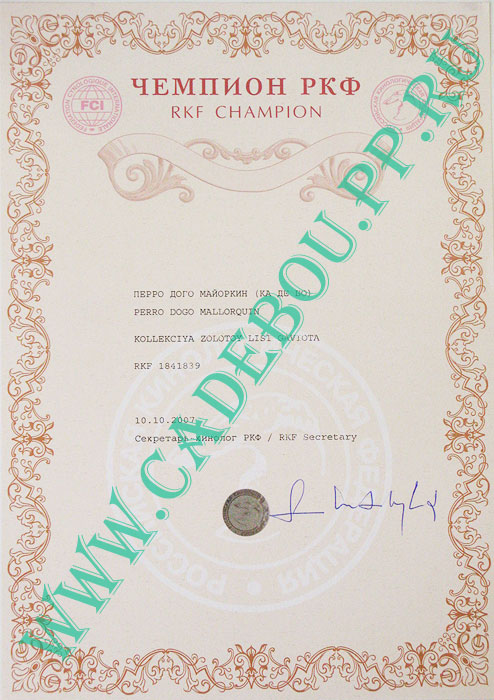 ЧЕМПИОН РКФ
RKF CHAMPION
FCI
ПЕРРО ДОГО МАЙОРКИН (КА ДЕ БО)
PERRO DOGO MALLORQUIN
KOLLEKCIYA ZOLOTOY LIST GAVIOTA
RKF 1841839
10.10.2007
Секретарь-кинолог РКФ / RKF Secretary
РОССИЙСКАЯ КИНОЛОГИЧЕСКАЯ ФЕДЕРАЦИЯ
WWW.CADEBOU.PP.RU